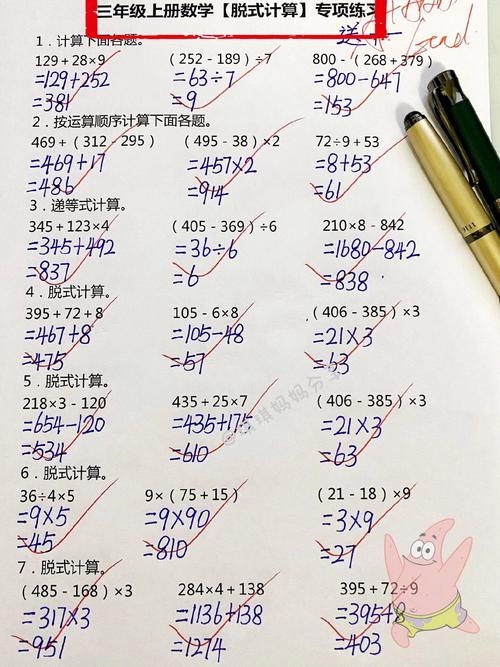 三年级上册数学【脱式计算】专项练习
1．计算下面各题。
129＋28×9 （252－189）÷7 800－（268＋379）
=129+252 =63÷7 =800-647
=381 =9 =153
2．按运算顺序计算下面各题。
469＋（312－295） （495－38）×2 72÷9＋53
=469+17 =457×2 =8+53
=486 =914 =61
3．递等式计算。
345＋123×4 （405－369）÷6 210×8－842
=345+492 =36÷6 =1680-842
=837 =6 =838
4．脱式计算。
395＋72＋8 105－6×8 （406－385）×3
=467+8 =105-48 =21×3
=475 =57 =63
5．脱式计算。
218×3－120 435＋25×7 （406－385）×3
=654-120 =435+175 =21×3
=534 =610 =63
6．脱式计算。
36÷4×5 9×（75＋15） （21－18）×9
=9×5 =9×90 =3×9
=45 =810 =27
7．脱式计算。
（485－168）×3 284×4＋138 395＋72÷9
=317×3 =1136+138 =395+8
=951 =1274 =403